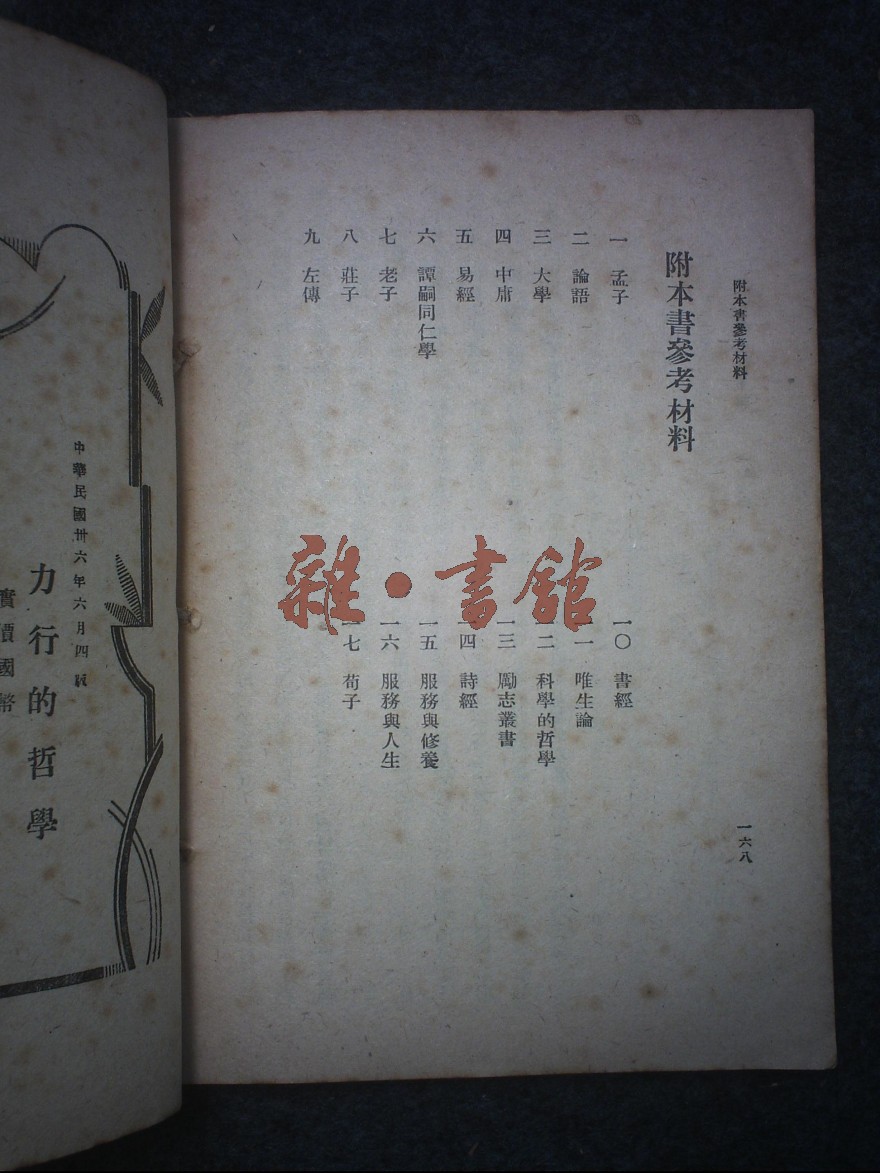 附本書參考材料
一六八
附本書參考材料
一 孟子
二 論語
三 大學
四 中庸
五 易經
六 譚嗣同仁學
七 老子
八 莊子
九 左傳
一〇 書經
一一 唯生論
一二 科學的哲學
一三 勵志叢書
一四 詩經
一五 服務與修養
一六 服務與人生
一七 荀子
雜·書館
中華民國卅六年六月四版
力行的哲學
實價國幣